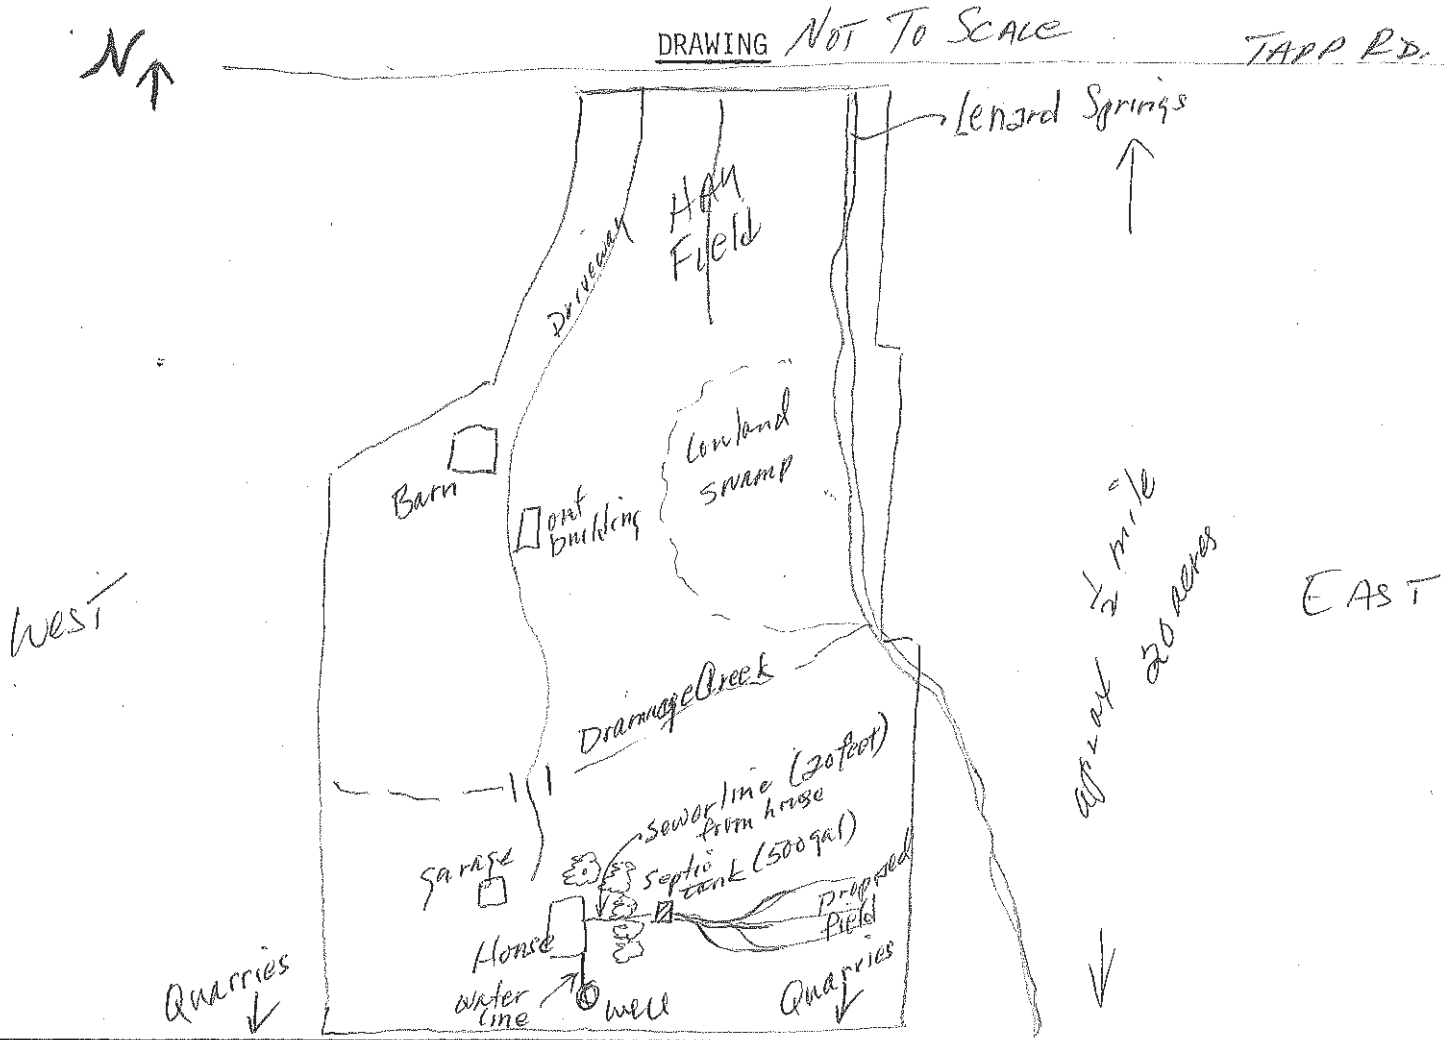 N
DRAWING NOT TO SCALE
TAPP RD.
Lenard Springs
HAY
Field
Driveway
Lowland
swamp
Barn
out
building
West
EAST
aprax 1/2 mile
20 acres
Drainage Creek
sewor line (20 feet)
from house
septic
tank (500 gal)
garage
proposed
field
House
Quarries
water
line
well
Quarries